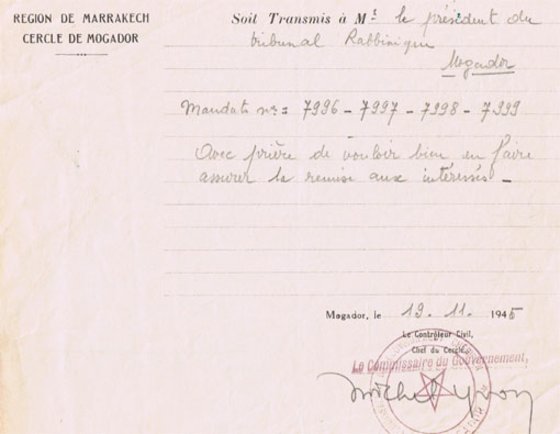 REGION DE MARRAKECH
CERCLE DE MOGADOR
Soit Transmis à Mr le président du
tribunal Rabbinique
Mogador
Mandats nos= 7996 - 7997 - 7998 - 7999
Avec prière de vouloir bien en faire
assurer la remise aux intéressés -
Mogador, le 19. 11. 1945
Le Contrôleur Civil,
Chef du Cercle
Le Commissaire du Gouvernement,
Michel Yvon